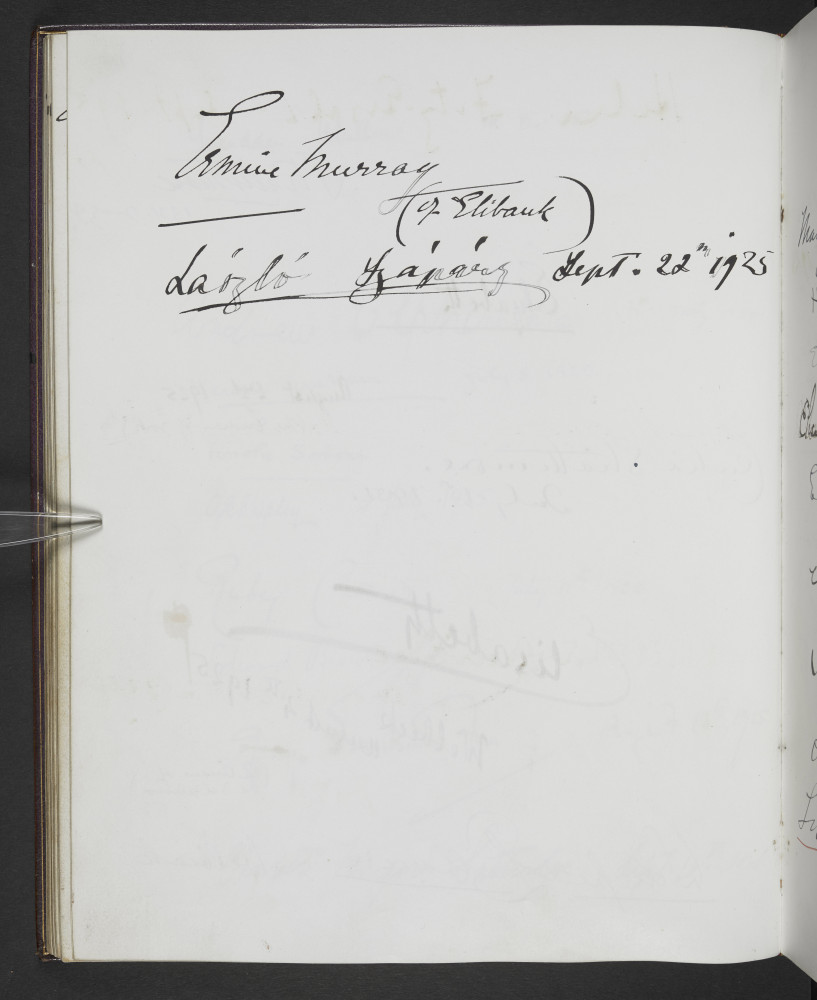 Ermine Murray
(of Elibank)
László Szápáry Sept. 22nd 1925